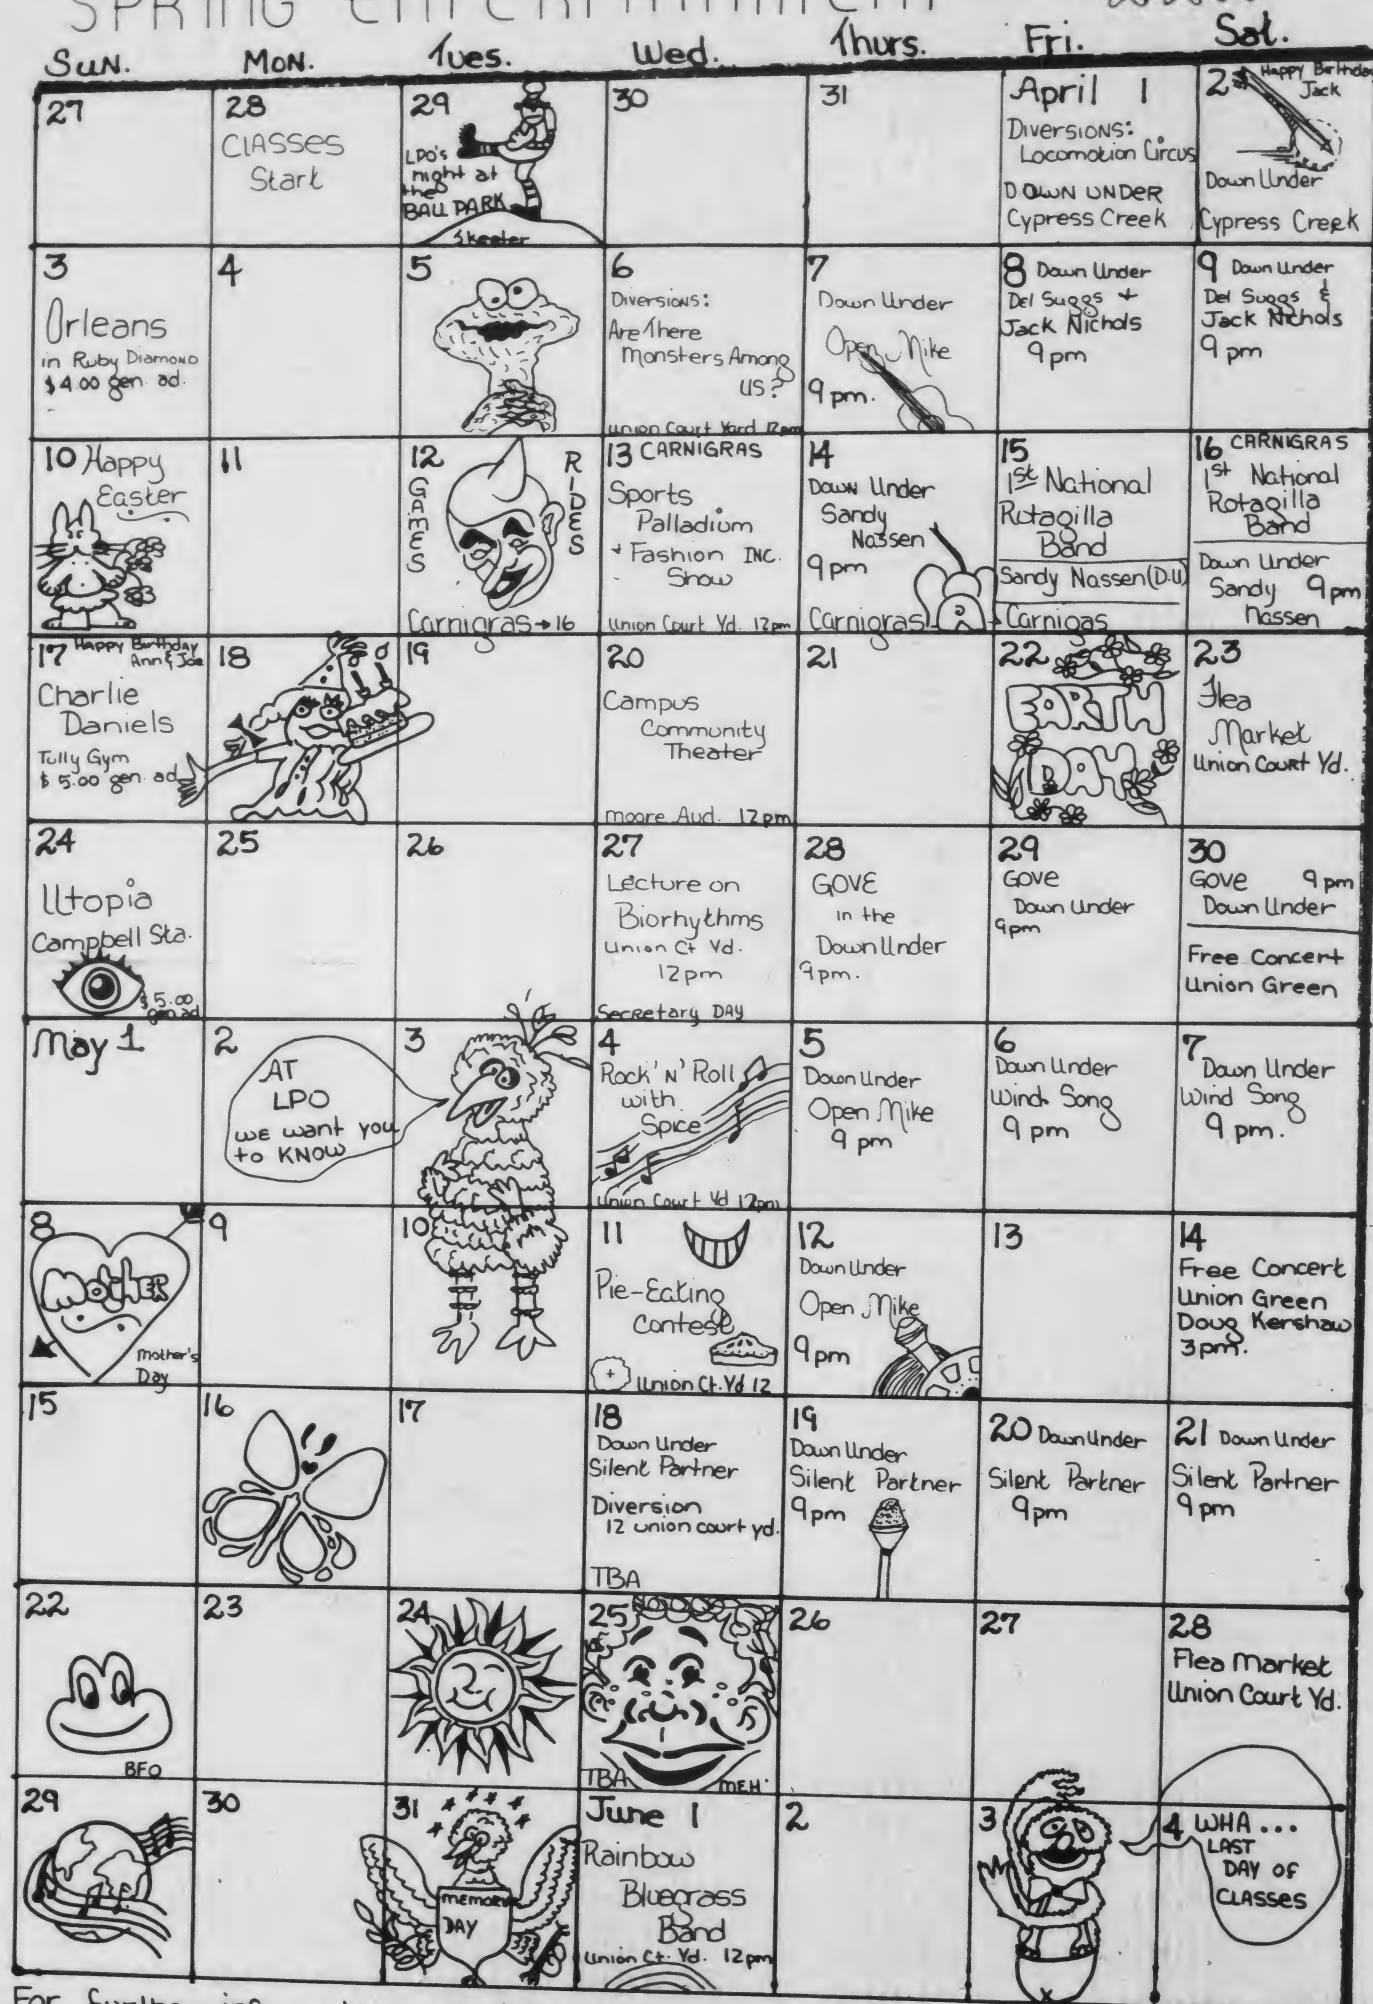 SPRING ENTERTAINMENT
SUN. MON. Tues. Wed. Thurs. Fri. Sat.
27
28
CLASSES
Start
29
LPO's
night at
the
BALL PARK
Skeeter
30
31
April 1
Diversions:
Locomotion Circus
DOWN UNDER
Cypress Creek
2
Happy Birthday
Jack
Down Under
Cypress Creek
3
Orleans
in Ruby Diamond
$4.00 gen. ad.
4
5
6
Diversions:
Are There
Monsters Among
us?
Union Court Yard 12pm
7
Down Under
Open Mike
9 pm.
8 Down Under
Del Suggs +
Jack Nichols
9 pm
9 Down Under
Del Suggs &
Jack Nichols
9 pm
10 Happy
Easter
11
12
GAMES
RIDES
Carnigras → 16
13 CARNIGRAS
Sports
Palladium
+ Fashion INC.
Show
Union Court Yd. 12pm
14
Down Under
Sandy
Nassen
9 pm
Carnigras
15
1st National
Rotagilla
Band
Sandy Nassen (D.U)
Carnigas
16 CARNIGRAS
1st National
Rotagilla
Band
Down Under
Sandy 9pm
Nassen
17 Happy Birthday
Ann & Joe
Charlie
Daniels
Tully Gym
$ 5.00 gen. ad
18
19
20
Campus
Community
Theater
moore Aud. 12pm
21
22
EARTH
DAY
23
Flea
Market
Union Court Yd.
24
Utopia
Campbell Sta.
$5.00
gen.ad
25
26
27
Lecture on
Biorhythms
Union Ct Yd.
12pm
Secretary DAY
28
GOVE
in the
Down Under
9pm.
29
GOVE
Down Under
9pm
30
GOVE 9pm
Down Under
Free Concert
Union Green
May 1
2
AT
LPO
WE want you
to KNOW
3
4
Rock 'N' Roll
with
Spice
Union Court Yd 12pm
5
Down Under
Open Mike
9 pm
6
Down Under
Wind Song
9 pm
7
Down Under
Wind Song
9 pm.
8
MOTHER
Mother's
Day
9
10
11
Pie-Eating
Contest
Union Ct. Yd 12
12
Down Under
Open Mike
9pm
13
14
Free Concert
Union Green
Doug Kershaw
3pm.
15
16
17
18
Down Under
Silent Partner
Diversion
12 union court yd.
TBA
19
Down Under
Silent Partner
9pm
20 Down Under
Silent Partner
9pm
21 Down Under
Silent Partner
9 pm
22
BFO
23
24
25
TBA
MEH
26
27
28
Flea Market
Union Court Yd.
29
30
31
MEMORIAL
DAY
June 1
Rainbow
Bluegrass
Band
Union Ct. Yd. 12pm
2
3
4 WHA...
LAST
DAY OF
CLASSES
For further